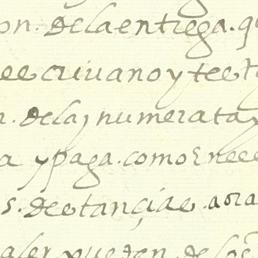 on. de la entrega. q
ee crivano y tee t
n. de las numerata y
a y paga. como En ee
s. de e tançia e. aora
aler pueden de los